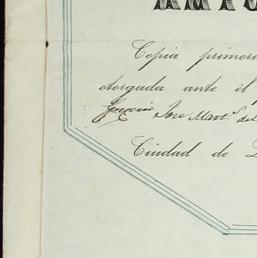 Copia primor
otorgada ante el
José Mart.s del
Ciudad de